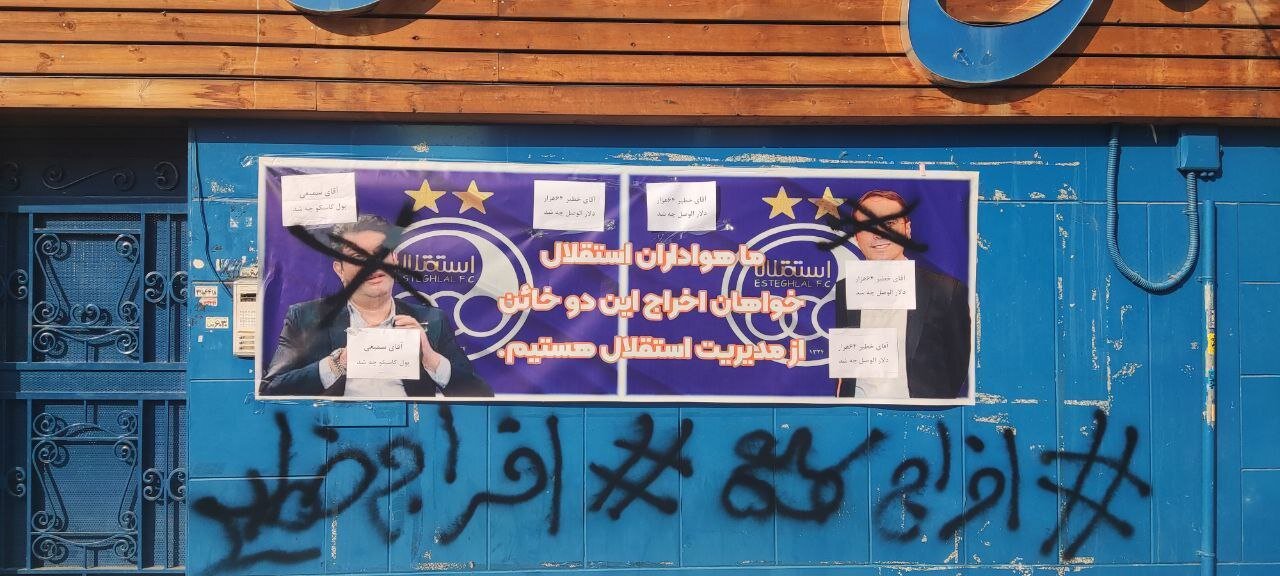 آقای سمیعی
پول گاسکو چه شد
آقای خطیر ۶۴هزار
دلار الوصل چه شد
آقای خطیر ۶۴هزار
دلار الوصل چه شد
استقلال
ESTEGHLAL F.C
استقلال
ESTEGHLAL F.C
۱۳۲۴
ما هواداران استقلال
خواهان اخراج این دو خائن
از مدیریت استقلال هستیم.
آقای خطیر ۶۴هزار
دلار الوصل چه شد
آقای سمیعی
پول گاسکو چه شد
آقای خطیر ۶۴هزار
دلار الوصل چه شد
#اخراج #اخراج خطیر